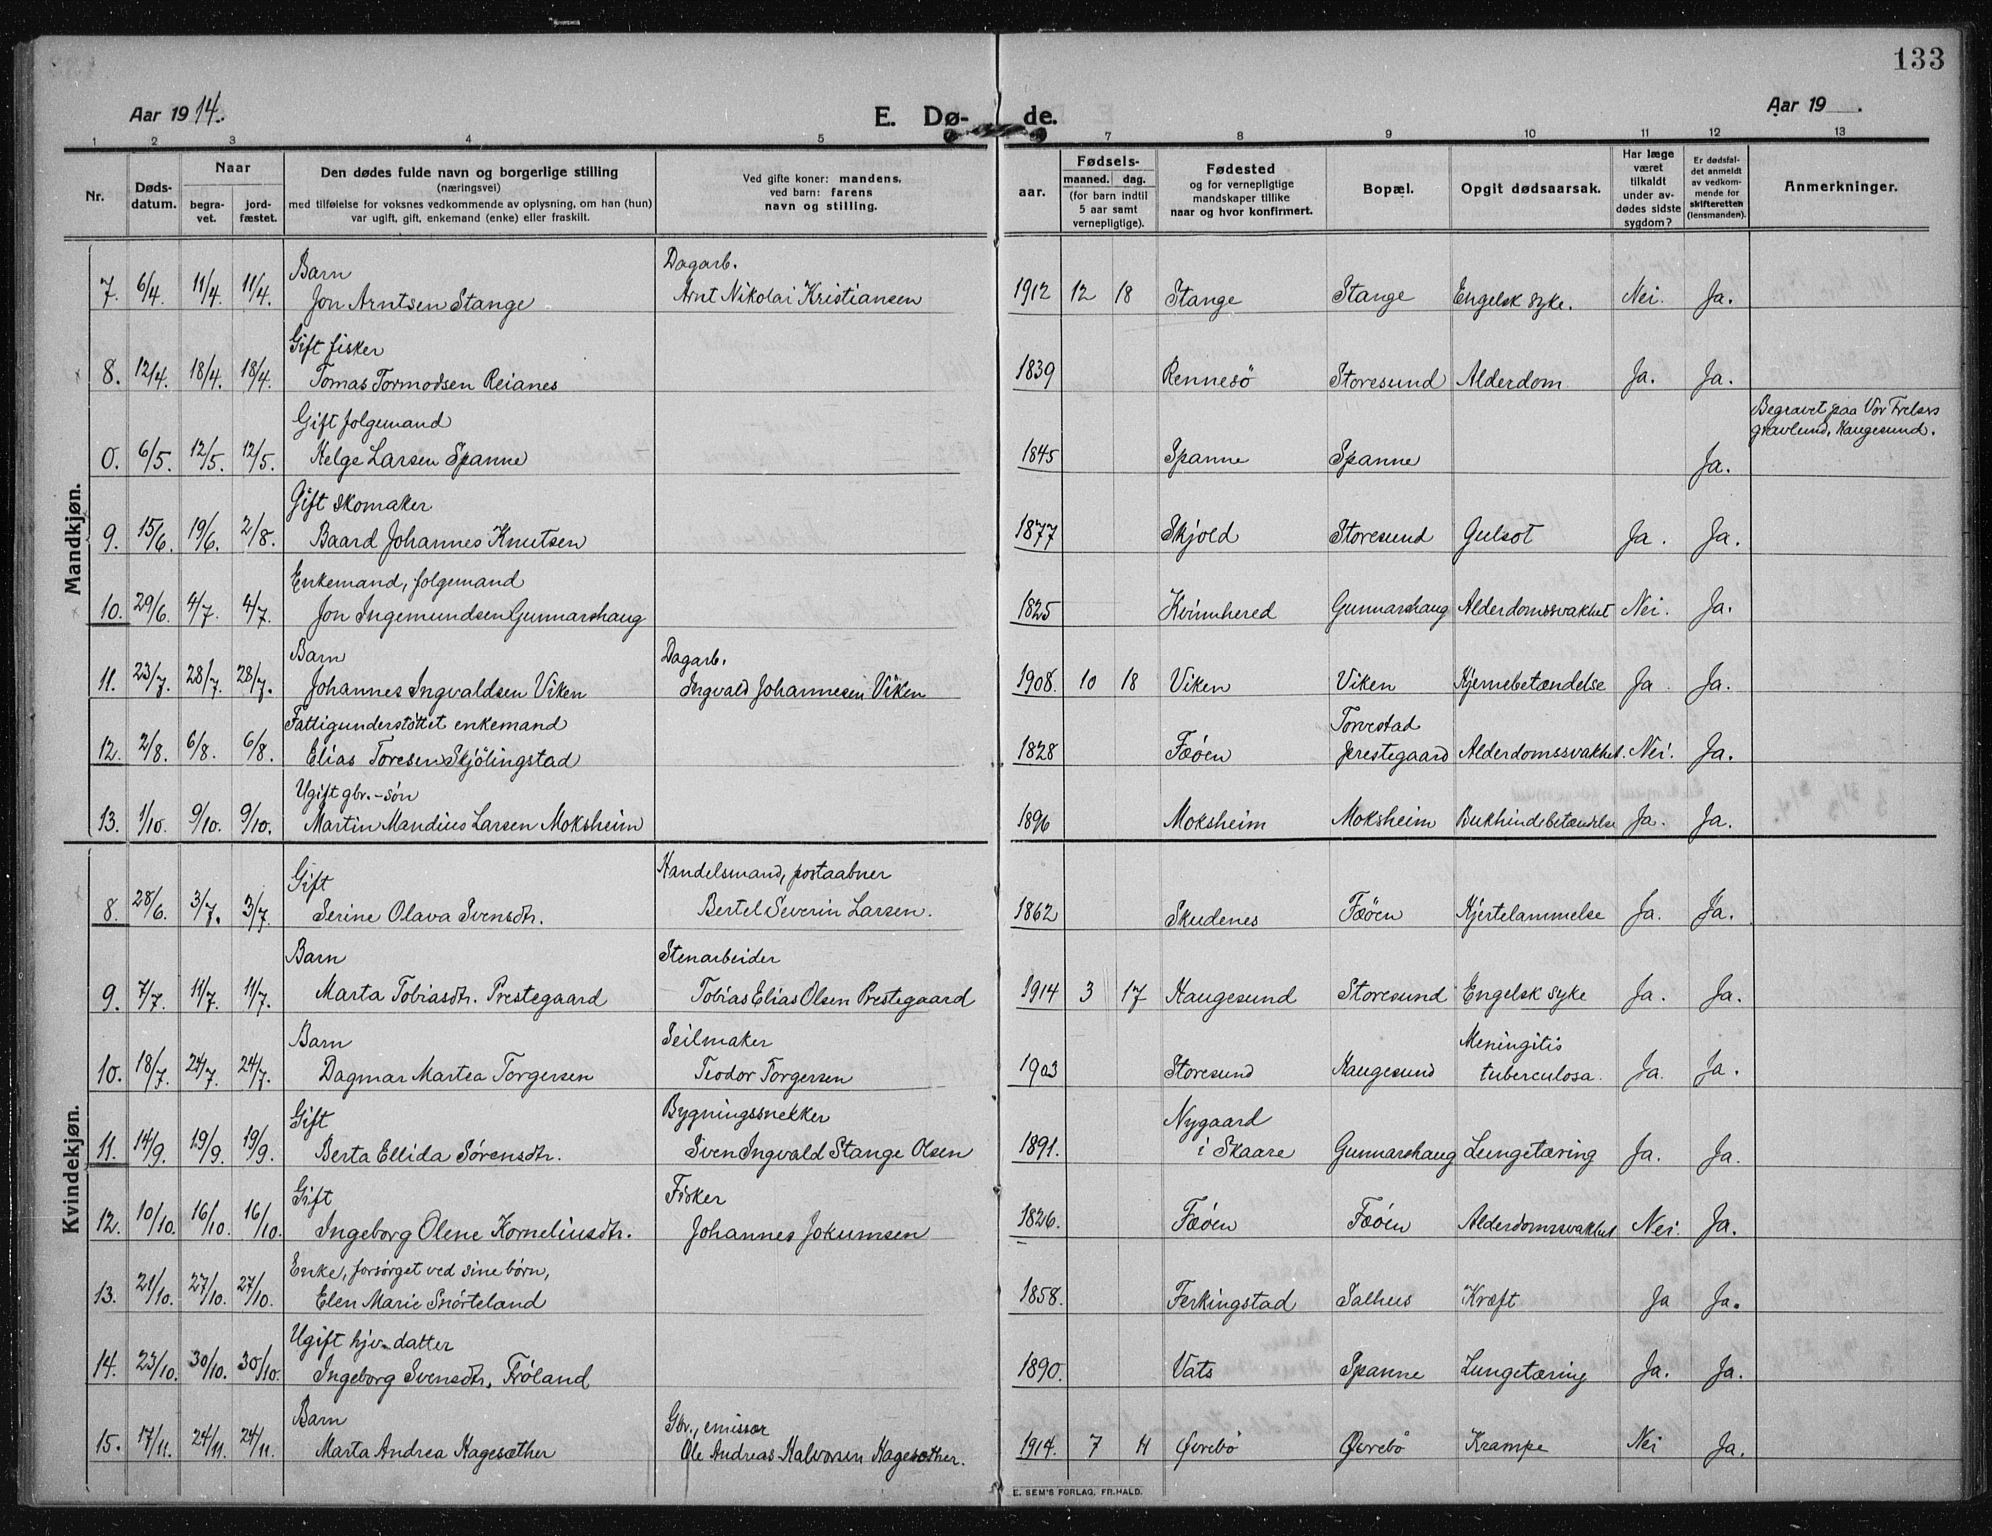 133
Aar 1914.
E. Dø-
de.
Aar 19 .
1 2 3 4 5 7 8 9 10 11 12 13
Nr.
Døds-
datum.
Naar
begra-
vet.
jord-
fæstet.
Den dødes fulde navn og borgerlige stilling
(næringsvei)
med tilføielse for voksnes vedkommende av oplysning, om han (hun)
var ugift, gift, enkemand (enke) eller fraskilt.
Ved gifte koner: mandens,
ved barn: farens
navn og stilling.
aar.
Fødsels-
maaned. dag.
(for barn indtil
5 aar samt
vernepligtige).
Fødested
og for vernepligtige
mandskaper tillike
naar og hvor konfirmert.
Bopæl.
Opgit dødsaarsak.
Har læge
været
tilkaldt
under av-
dødes sidste
sygdom?
Er dødsfal-
det anmeldt
av vedkom-
mende for
skifteretten
(lensmanden).
Anmerkninger.
Mandkjøn.
Barn Dagarb.
7. 6/4. 11/4. 11/4. Jon Arntsen Stange Arnt Nikolai Kristiansen 1912 12 18 Stange Stange Engelsk syke. Nei. Ja.
Gift fisker
8. 12/4. 18/4. 18/4. Tomas Tormodsen Reianes 1839 Rennesö Storesund Alderdom Ja. Ja.
Gift folgemand Begravet paa Vor Frelsers
gravlund, Haugesund.
0. 6/5. 12/5. 12/5. Helge Larsen Spanne 1845 Spanne Spanne Ja.
Gift skomaker
9. 15/6. 19/6. 2/8. Baard Johannes Knutsen 1877 Skjold Storesund Gulsot Ja. Ja.
Enkemand, folgemand
10. 29/6. 4/7. 4/7. Jon Ingemundsen Gunnarshaug 1825 Kvinnhered Gunnarshaug Alderdomssvakhet Nei. Ja.
Barn Dagarb.
11. 23/7. 28/7. 28/7. Johannes Ingvaldsen Viken Ingvald Johannesen Viken 1908. 10 18 Viken Viken Hjernebetændelse Ja. Ja.
Fattigunderstöttet enkemand Torvestad
12. 2/8. 6/8. 6/8. Elias Toresen Skjölingstad 1828 Fæöen prestegaard Alderdomssvakhet. Nei. Ja.
Ugift gbr.-sön
13. 1/10. 9/10. 9/10. Martin Mandius Larsen Moksheim 1896 Moksheim Moksheim Bukhindebetændelse Ja. Ja.
Kvindekjøn.
Gift Handelsmand, postaabner
8. 28/6. 3/7. 3/7. Serine Olava Svensdtr. Bertel Severin Larsen. 1862 Skudenes Fæöen Hjertelammelse Ja. Ja.
Barn Stenarbeider
9. 7/7. 11/7. 11/7. Marta Tobiasdtr. Prestegaard Tobias Elias Olsen Prestegaard 1914 3 17 Haugesund Storesund Engelsk syke Ja. Ja.
Barn Seilmaker Meningitis
10. 18/7. 24/7. 24/7. Dagmar Martea Torgersen Teodor Torgersen 1903 Storesund Haugesund tuberculosa. Ja. Ja.
Gift Bygningssnekker Nygaard
11. 14/9. 19/9. 19/9. Berta Ellida Sörensdtr. Sven Ingvald Stange Olsen 1891. i Skaare Gunnarshaug Lungetæring Ja. Ja.
Gift Fisker
12. 10/10. 16/10. 16/10. Ingeborg Olene Korneliusdtr. Johannes Jokumsen 1826. Fæöen Fæöen Alderdomssvakhet Nei. Ja.
Enke, forsörget ved sine börn,
13. 21/10. 27/10. 27/10. Elen Marie Snörteland 1858. Ferkingstad Salhus Kræft Ja Ja.
Ugift hjv. datter
14. 23/10. 30/10. 30/10. Ingeborg Svensdtr. Fröland 1890. Vats Spanne Lungetæring Ja. Ja.
Barn Gbr., emissær
15. 17/11. 24/11. 24/11. Marta Andrea Hagesæther Ole Andreas Halvorsen Hagesæther. 1914. 7 11 Øvrebö Øvrebö Krampe Nei Ja.
E. SEM'S FORLAG, FR.HALD.